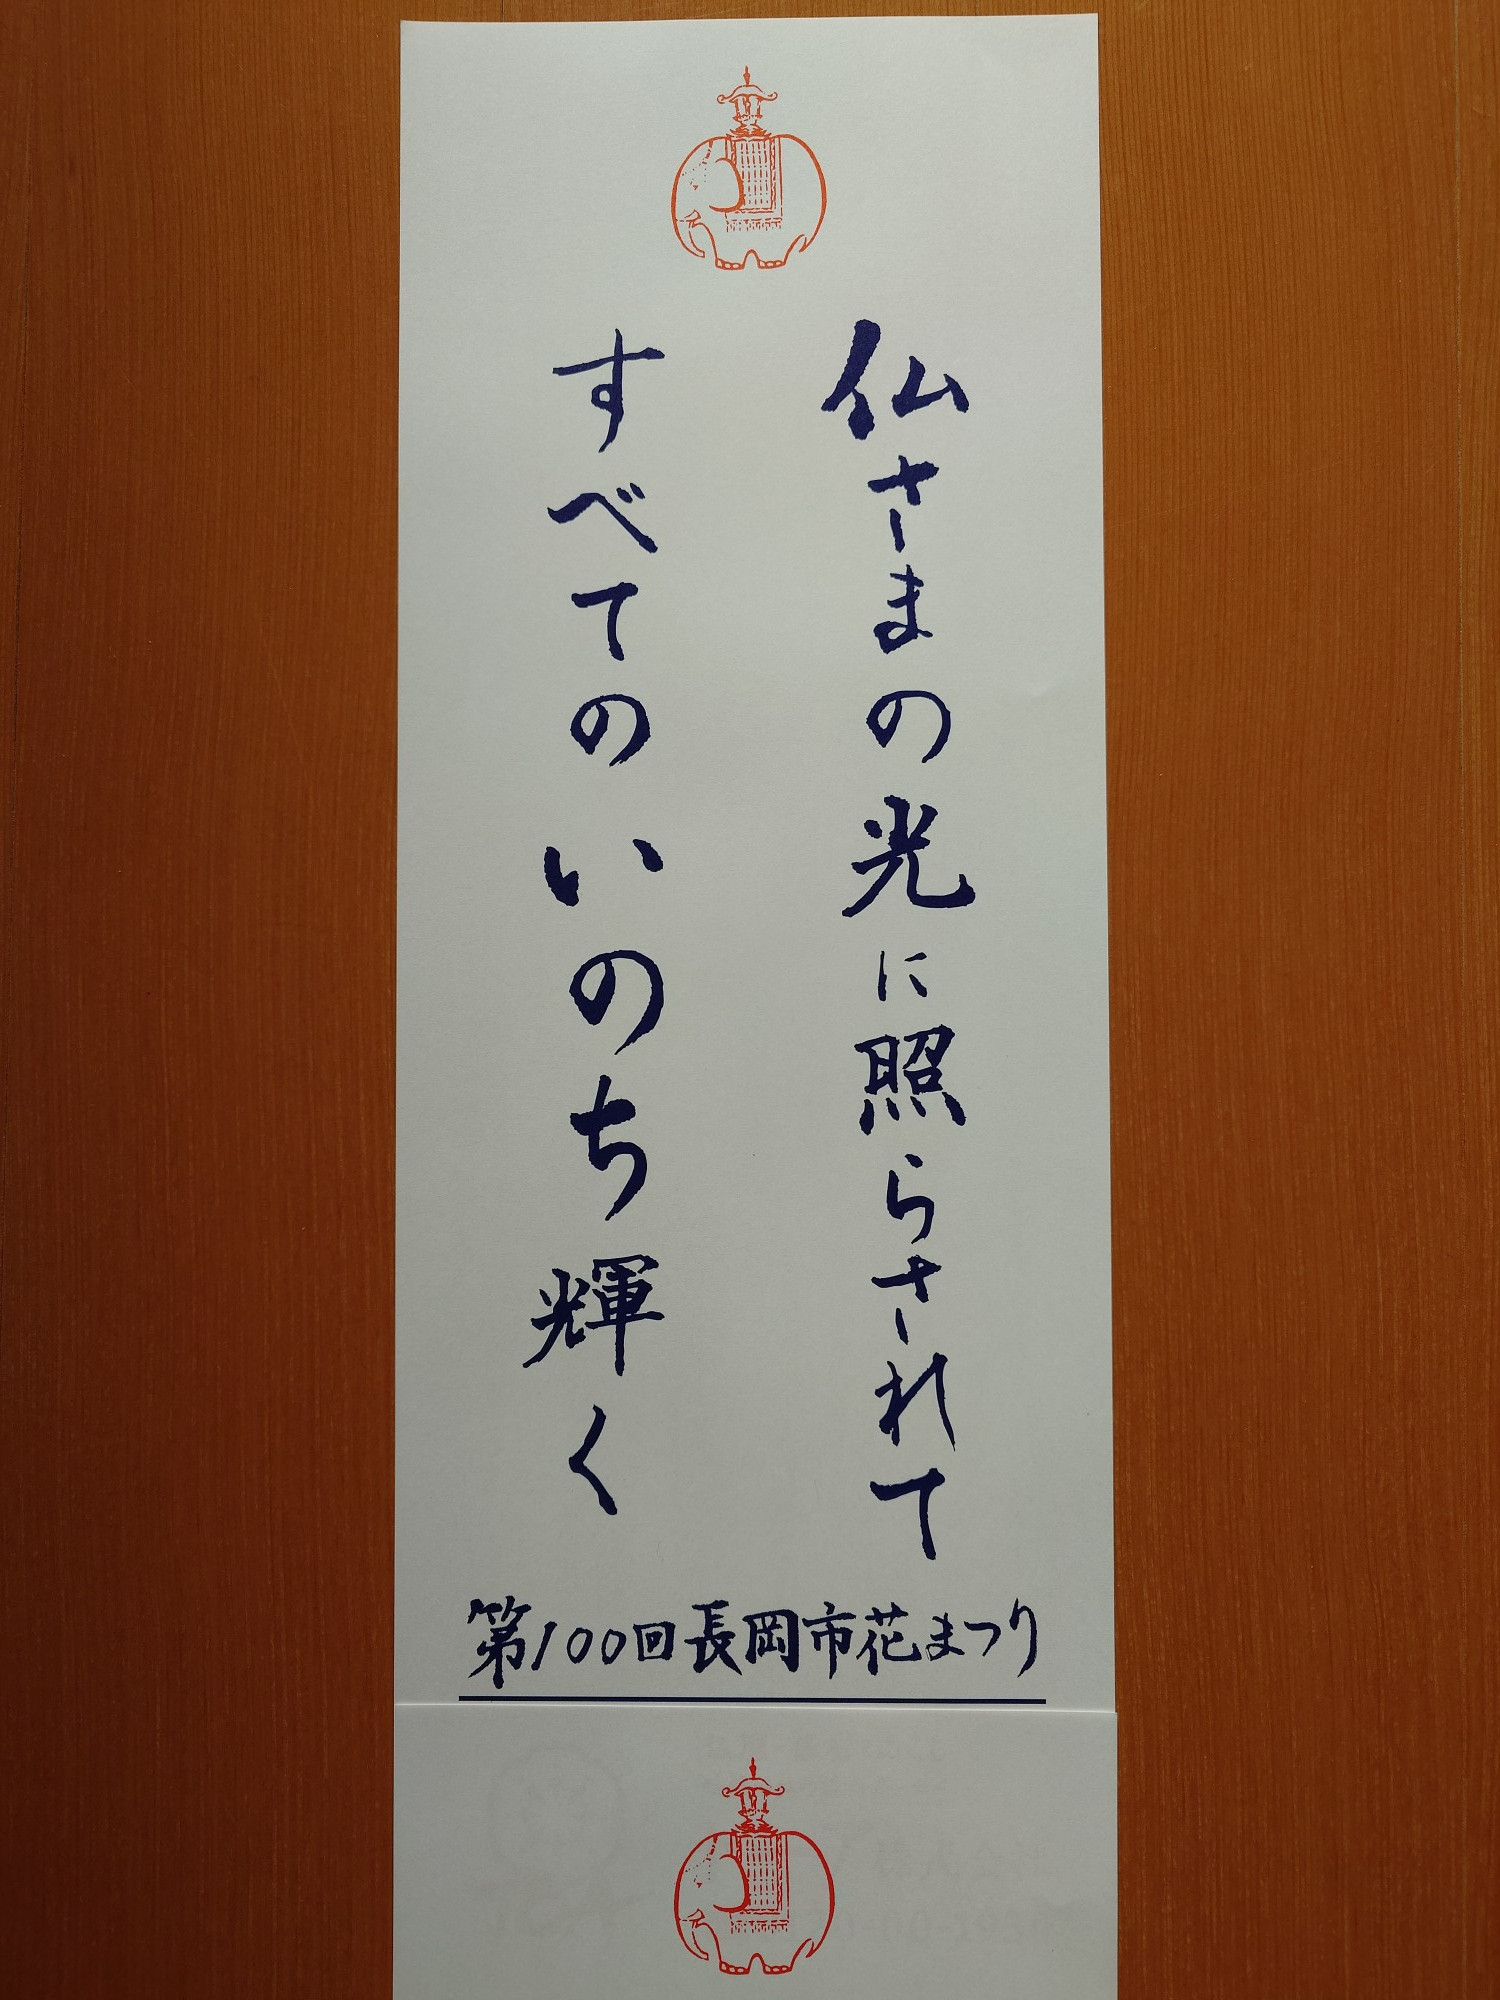 仏さまの光に照らされて
すべてのいのち輝く
第100回長岡市花まつり